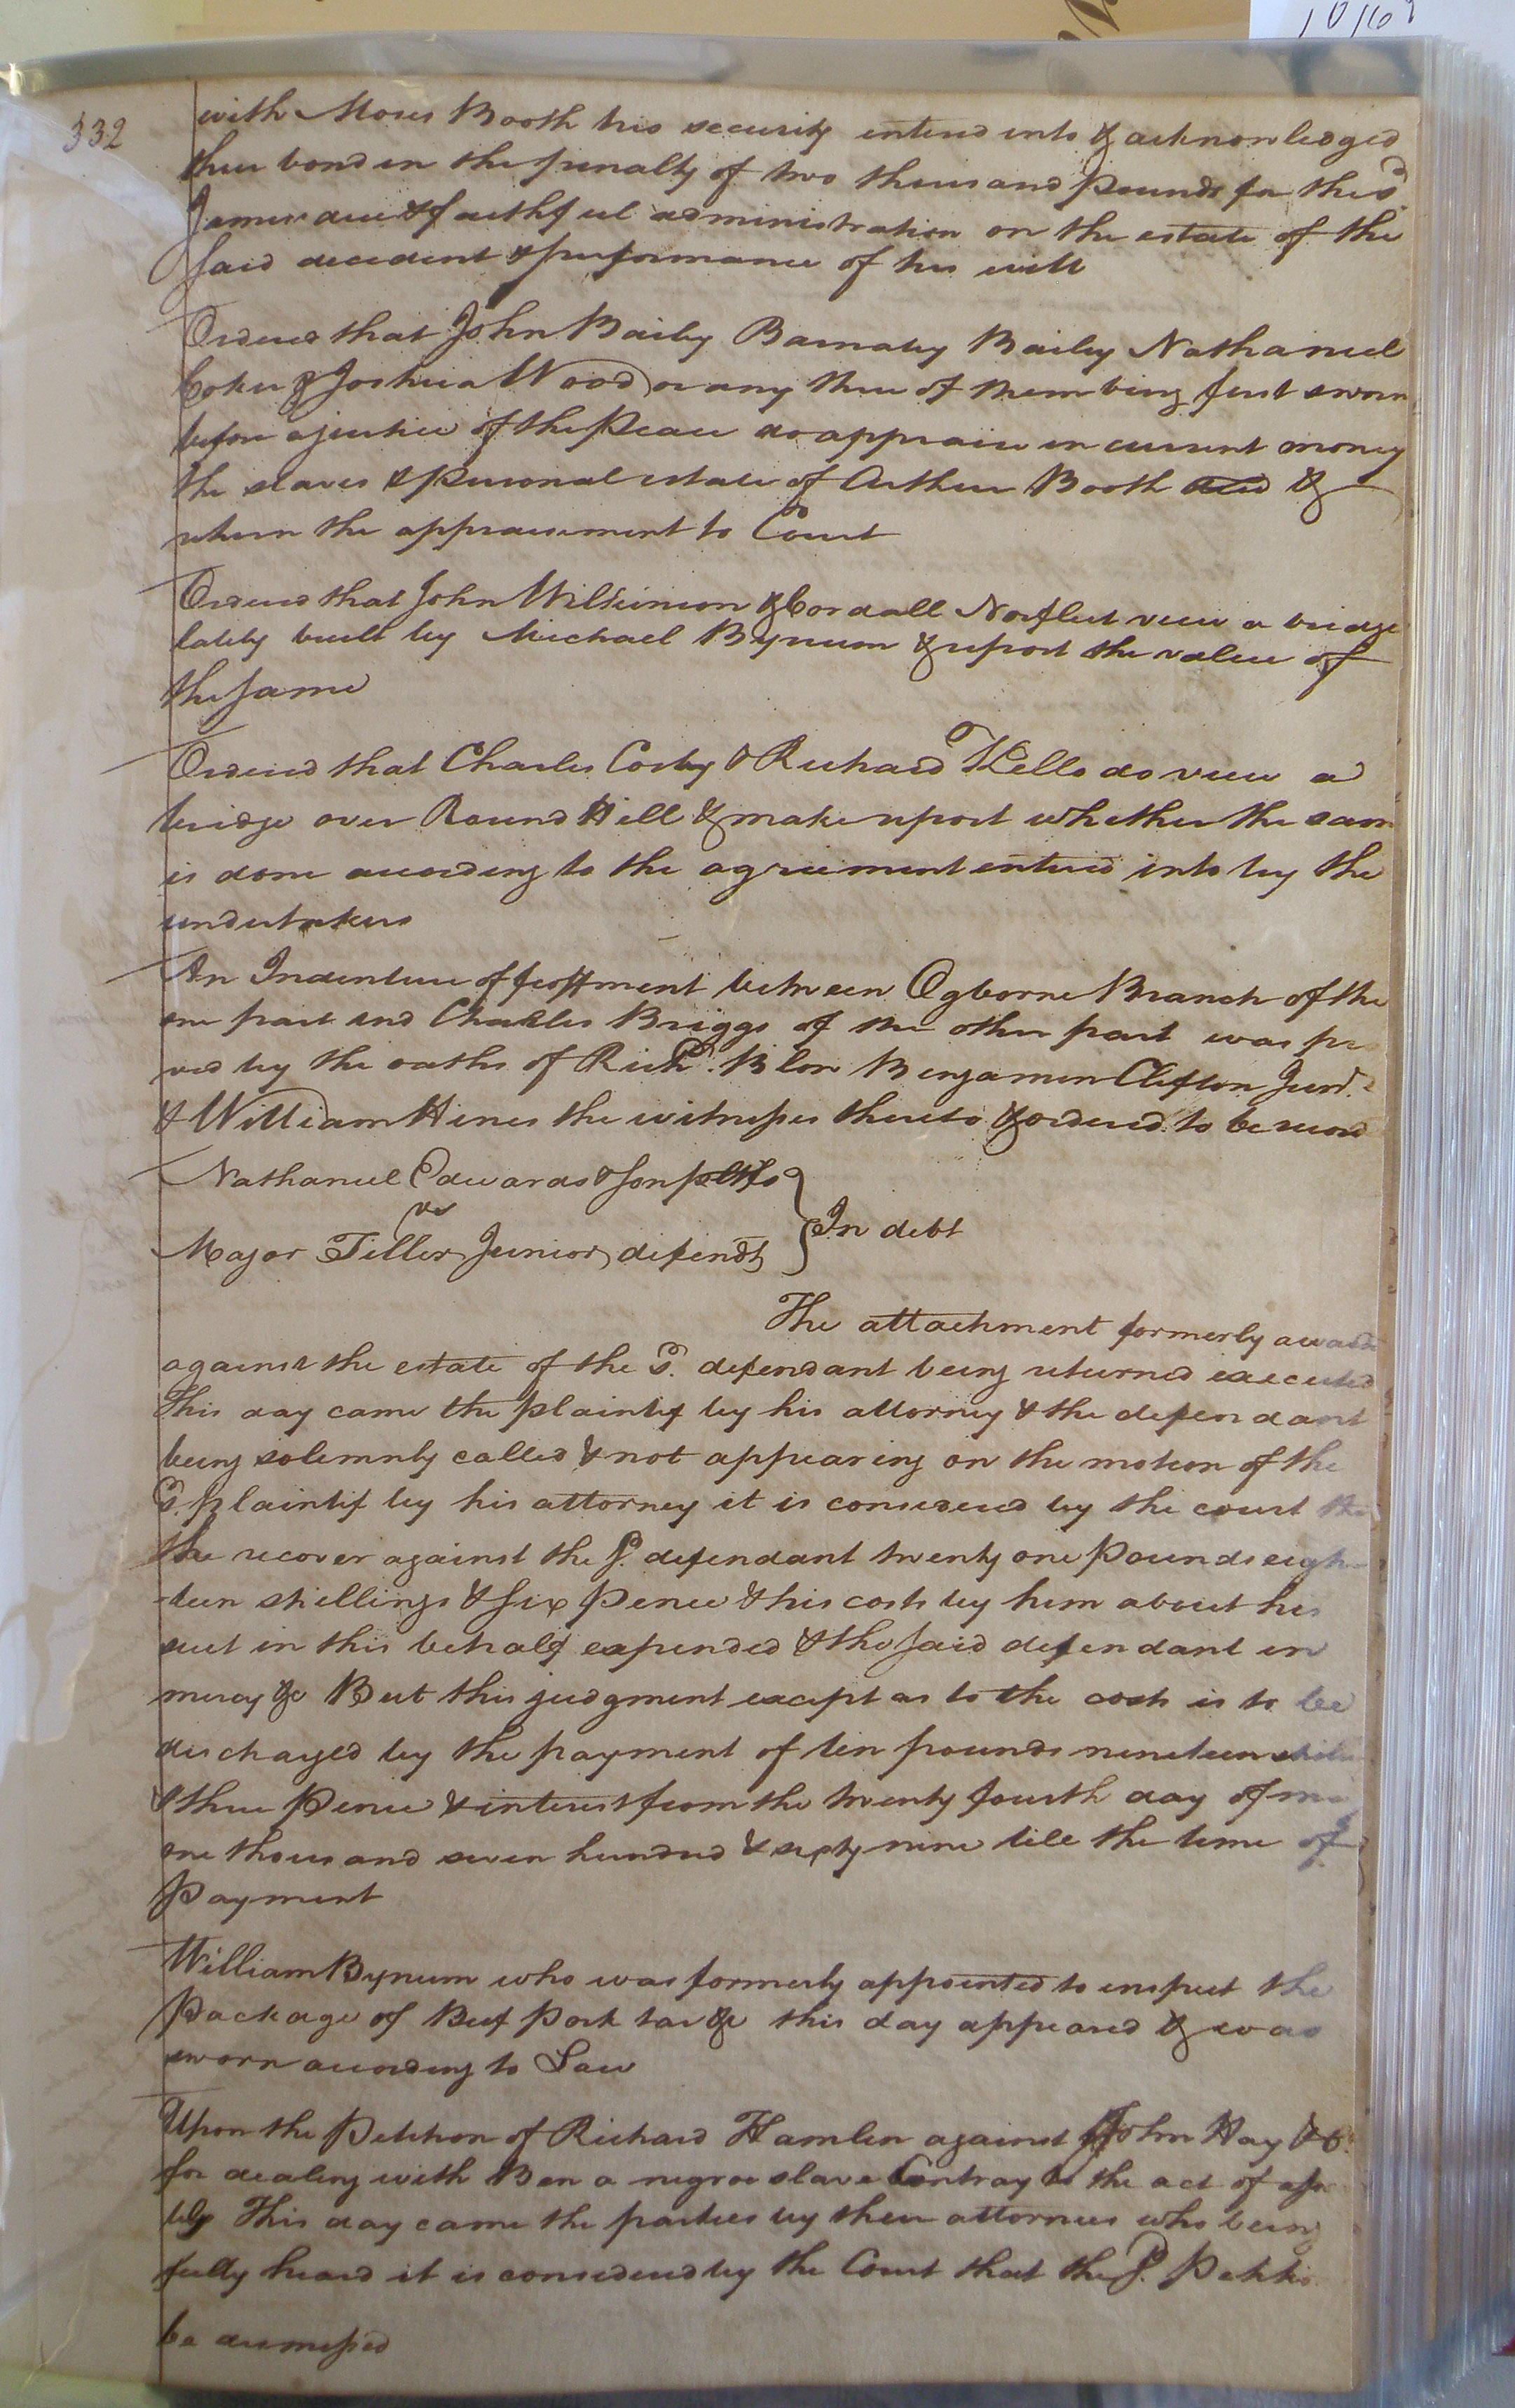 332
with Moses Booth his security entered into & acknowledged
their bond in the penalty of two thousand Pounds for the sd.
James due & faithful administration on the estate of the
said decedent & performance of his will
Ordered that John Baily Barnaby Baily Nathaniel
Coker & Joshua Wood or any three of them being first sworn
before a justice of the Peace do appraise in current money
the slaves & personal estate of Arthur Booth decd &
return the appraisement to Court
Ordered that John Wilkinson & Cordall Norflect view a bridge
lately built by Michael Bynum & report the value of
the same
Ordered that Charles Cosby & Richard Kello do view a
bridge over Round Hill & make report whether the same
is done according to the agreement entered into by the
undertakers
An Indenture of feoffment between Ogborne Branch of the
one part and Charles Briggs of the other part was pro
ved by the oaths of Richd. Blow Benjamin Clifton Junr.
& William Hines the witnesses thereto & ordered to be record
Nathaniel Edwards & son pltfs
vs
Major Tiller Junior defendt
In debt
The attachment formerly award
against the estate of the sd. defendant being returned executed
This day came the plaintif by his attorney & the defendant
being solemnly called & not appearing on the motion of the
sd. plaintif by his attorney it is considered by the court
the recover against the sd. defendant twenty one Pounds eigh
-teen shillings & six Pence & his costs by him about his
suit in this behalf expended & the said defendant in
mercy &c But this judgment except as to the costs is to be
discharged by the payment of ten pounds nineteen
& three Pence & interest from the twenty fourth day of
one thousand seven hundred & sixty nine till the time of
Payment
William Bynum who was formerly appointed to inspect the
Package of Beef Pork tar &c this day appeared & was
sworn according to Law
Upon the Petition of Richard Hamlin against John Hay & Co.
for dealing with Ben a negroe slave Contray to the act of asse
bly This day came the parties by their attornies who being
fully heard it is considered by the Court that the sd. Petitio
be dismissed